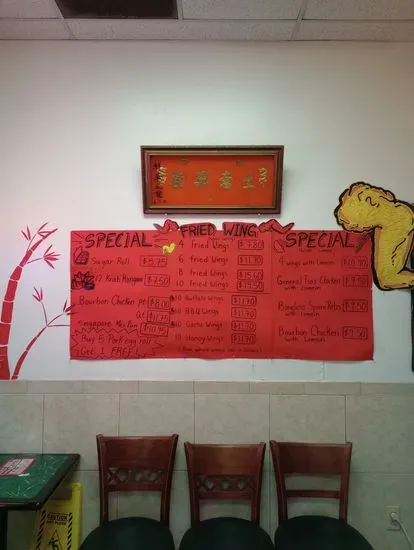 SPECIAL
Sugar Roll $5.75
12 Krab Rangoon $7.50
Bourbon Chicken pt $8.00
qt $11.75
Singapore Mei Fun $10.95
Buy 5 Pork egg roll
Get 1 FREE!
FRIED WING
4 fried Wings $7.80
6 fried Wings $11.70
8 fried Wings $15.60
10 fried Wings $19.50
10 Buffalo Wings $11.70
10 B.B.Q Wings $11.70
10 Garlic Wings $11.70
10 Honey Wings $11.70
SPECIAL
4 wings with Lomein $10.90
General Tso's Chicken
with Lomein
Boneless Spare Ribs
with Lomein
Bourbon Chicken
with Lomein
CAUTION